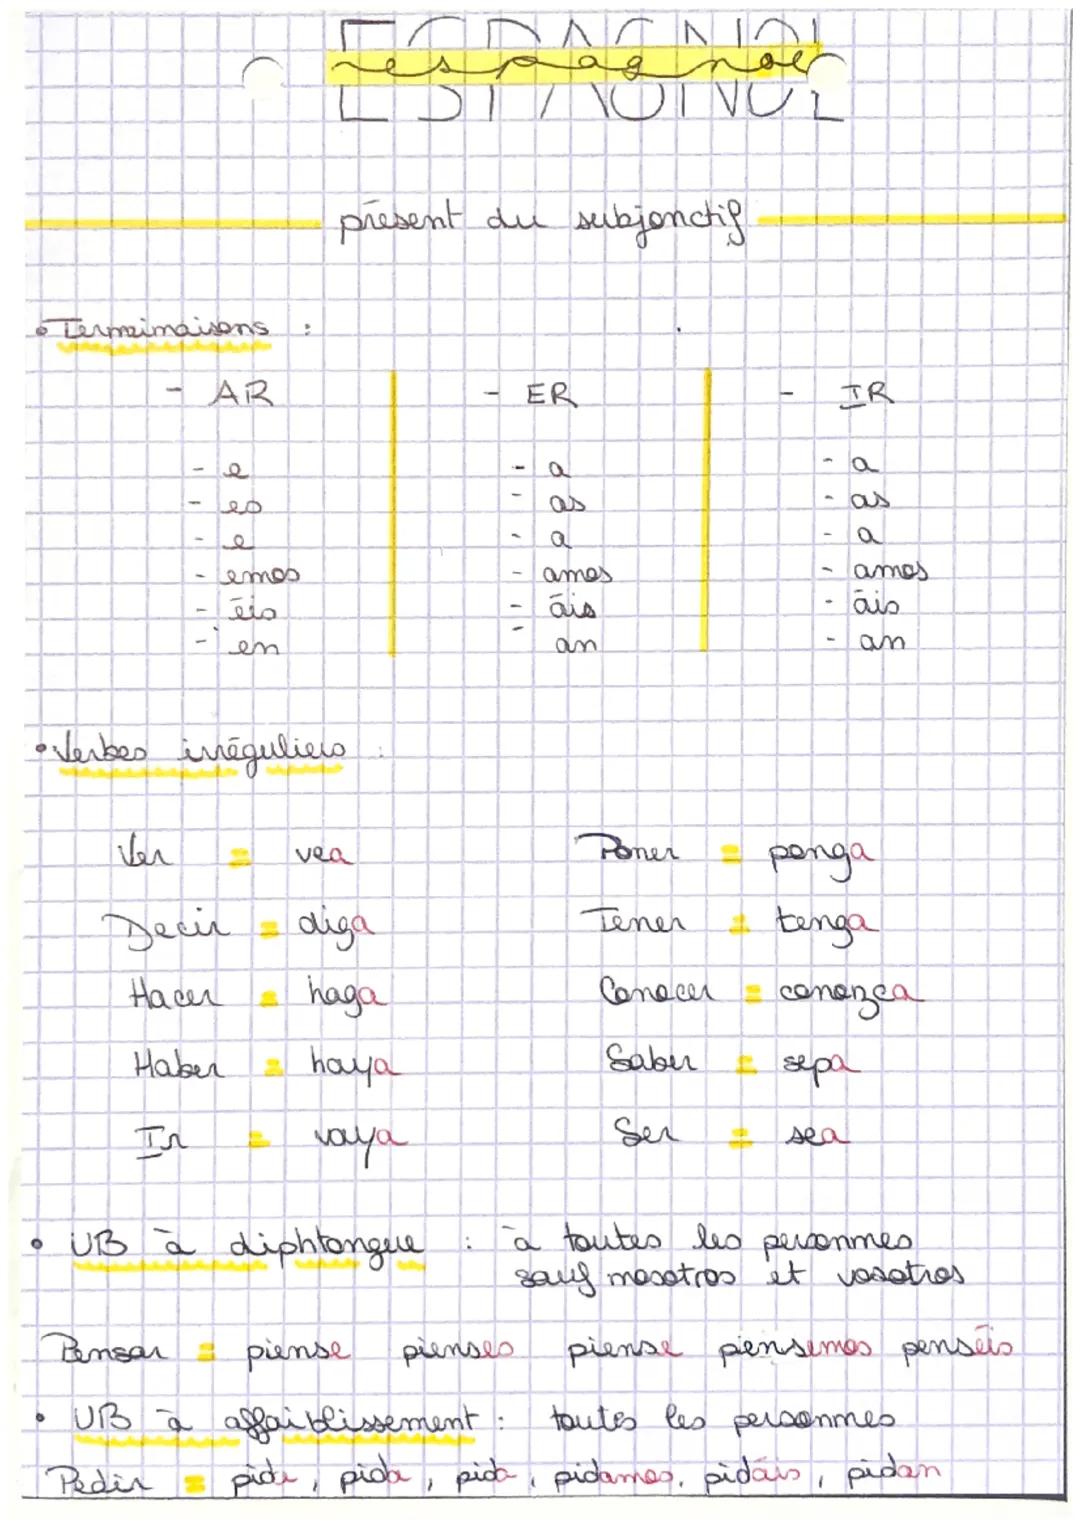 ESPAGNOL
espagnol
présent du subjonctif
• Termimaisons :
- AR - ER - IR
- e - a - a
- es - as - as
- e - a - a
- emos - amos - amos
- éis - áis - áis
- en - an - an
• Verbes irréguliers :
Ver = vea Poner = ponga
Decir = diga Tener = tenga
Hacer = haga Conocer = conozca
Haber = haya Saber = sepa
Ir = vaya Ser = sea
• VB à diphtongue : à toutes les personnes
sauf nosotros et vosotros
Pensar = piense pienses piense pensemos penséis
• VB à affaiblissement : toutes les personnes
Pedir = pida, pida, pida, pidamos, pidáis, pidan